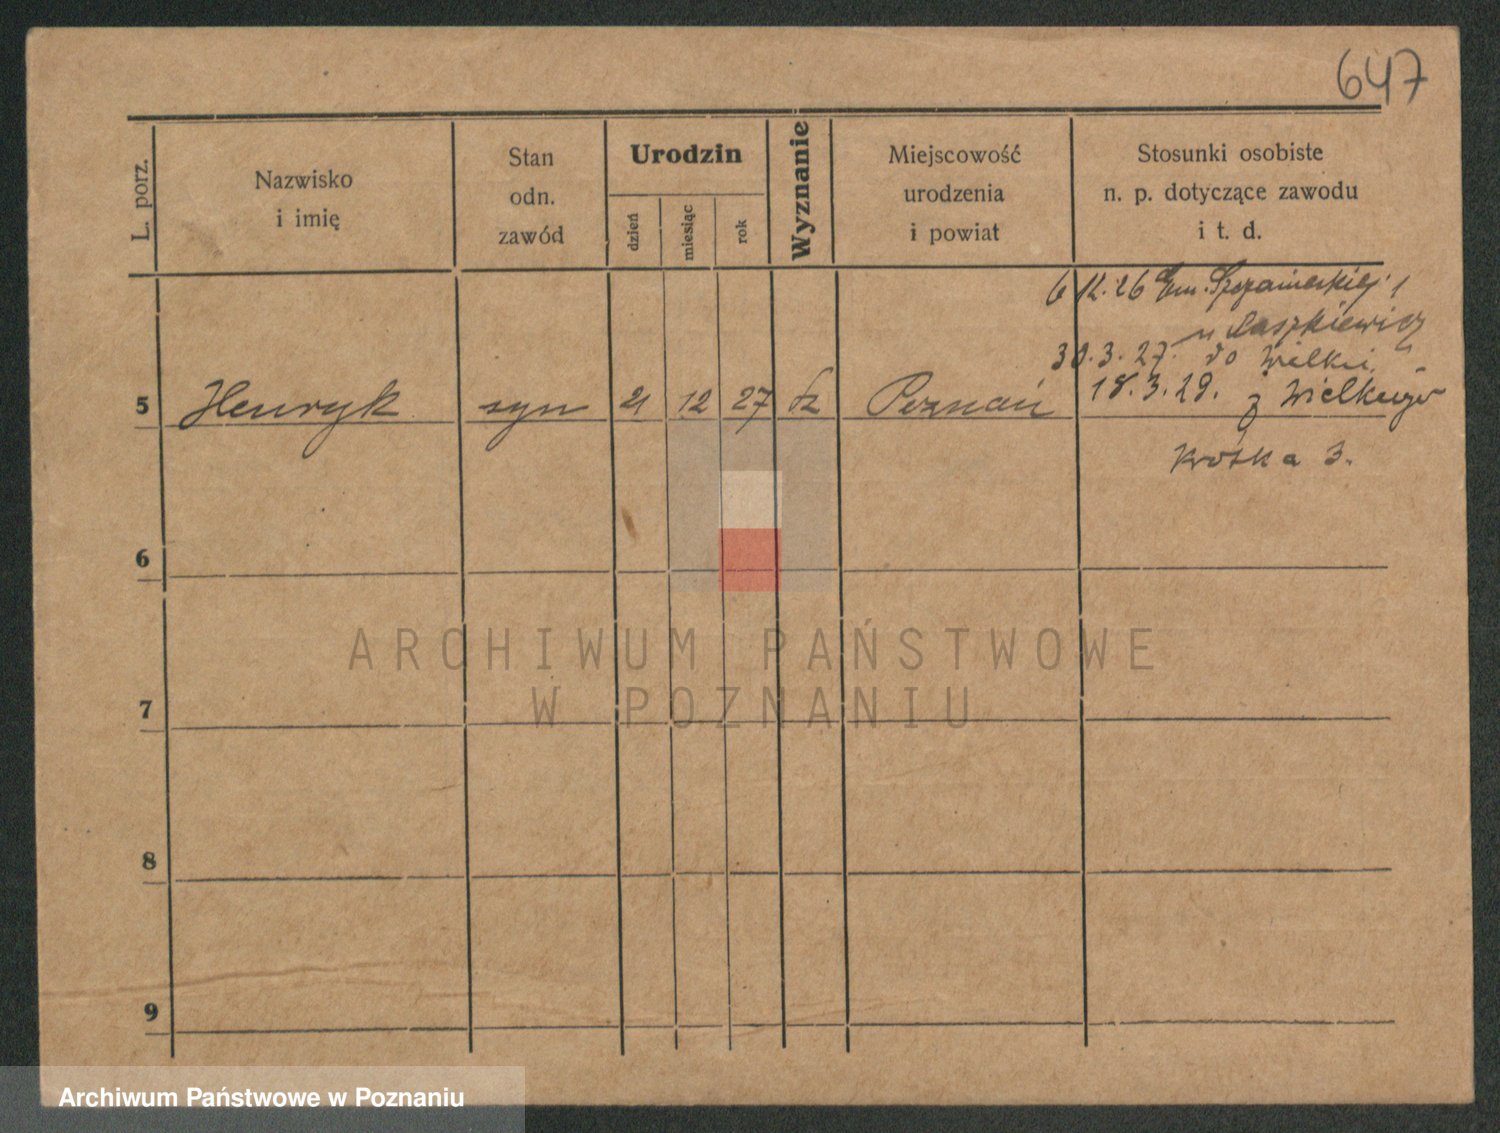 647
L. porz.
Nazwisko
i imię
Stan
odn.
zawód
Urodzin
dzień
miesiąc
rok
Wyznanie
Miejscowość
urodzenia
i powiat
Stosunki osobiste
n. p. dotyczące zawodu
i t. d.
6 12. 26 Em. Szczanieckiej 1
u Laszkiewicz
30.3.27. do Wielkiej
5 Henryk syn 21 12 27 Poznań 18.3.29. z Wielkiego
Krótka 3.
6
7
8
9
ARCHIWUM PAŃSTWOWE
W POZNANIU
Archiwum Państwowe w Poznaniu